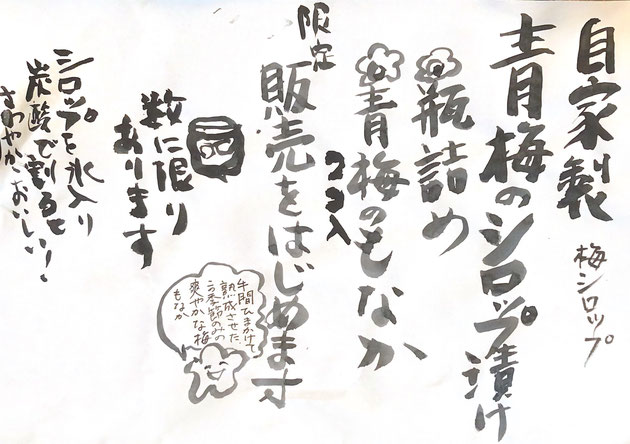 自家製
梅シロップ
青梅のシロップ漬け
瓶詰め
青梅のもなか
2コ入
限定
販売をはじめます
数に限り
あります
シロップを氷入り
炭酸で割ると
さわやかおいしい！
手間ひまかけて
熟成させた
この季節のみの
爽やかな梅
もなか